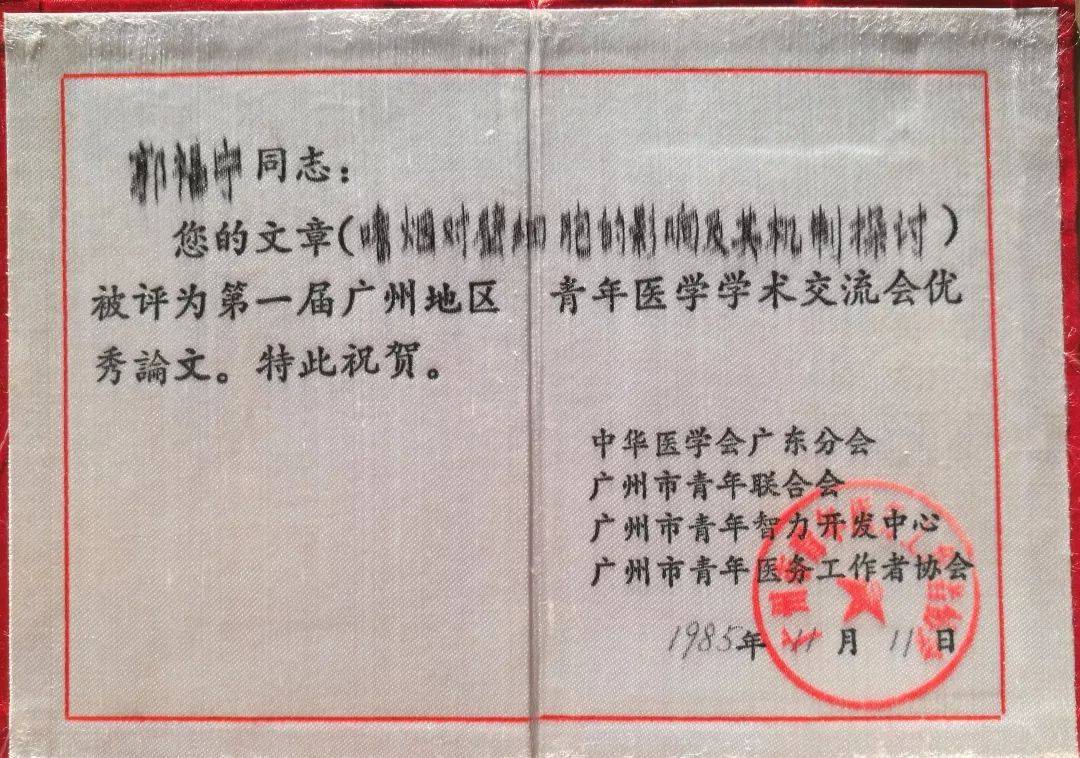 同志：
您的文章(烟对的影响及其机制探讨)
被评为第一届广州地区青年医学学术交流会优
秀論文。特此祝贺。
中华医学会广东分会
广州市青年联合会
广州市青年智力开发中心
广州市青年医务工作者协会
1985年11月11日